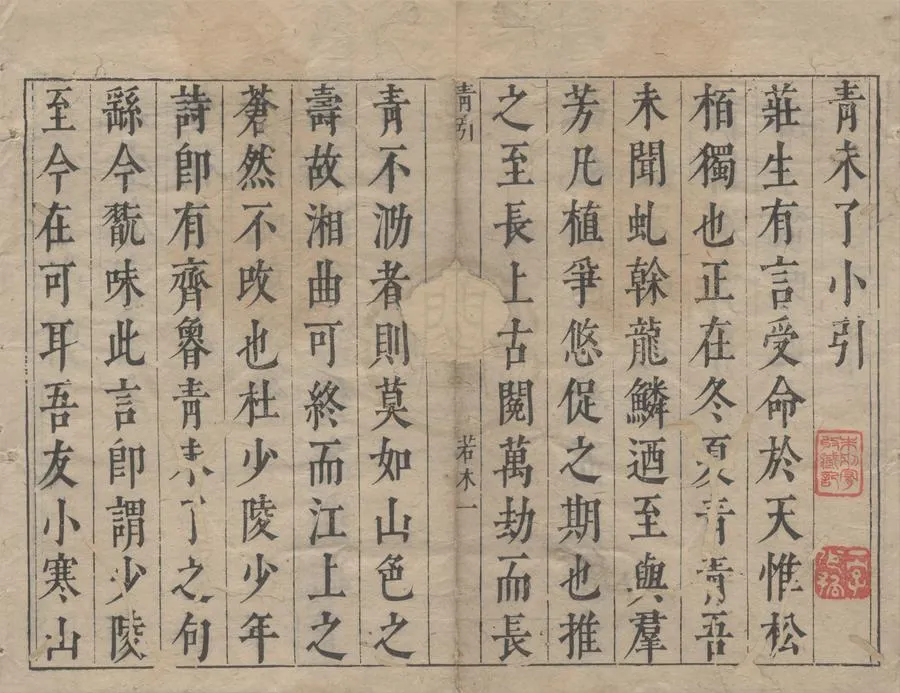 青未了小引
莊生有言受命於天惟松
栢獨也正在冬夏青青吾
未聞虬榦龍鱗迺至與羣
芳凡植爭悠促之期也推
之至長上古閱萬劫而長
青引
若木一
青不泐者則莫如山色之
壽故湘曲可終而江上之
蒼然不改也杜少陵少年
詩卽有齊魯青未了之句
繇今翫味此言卽謂少陵
至今在可耳吾友小寒山